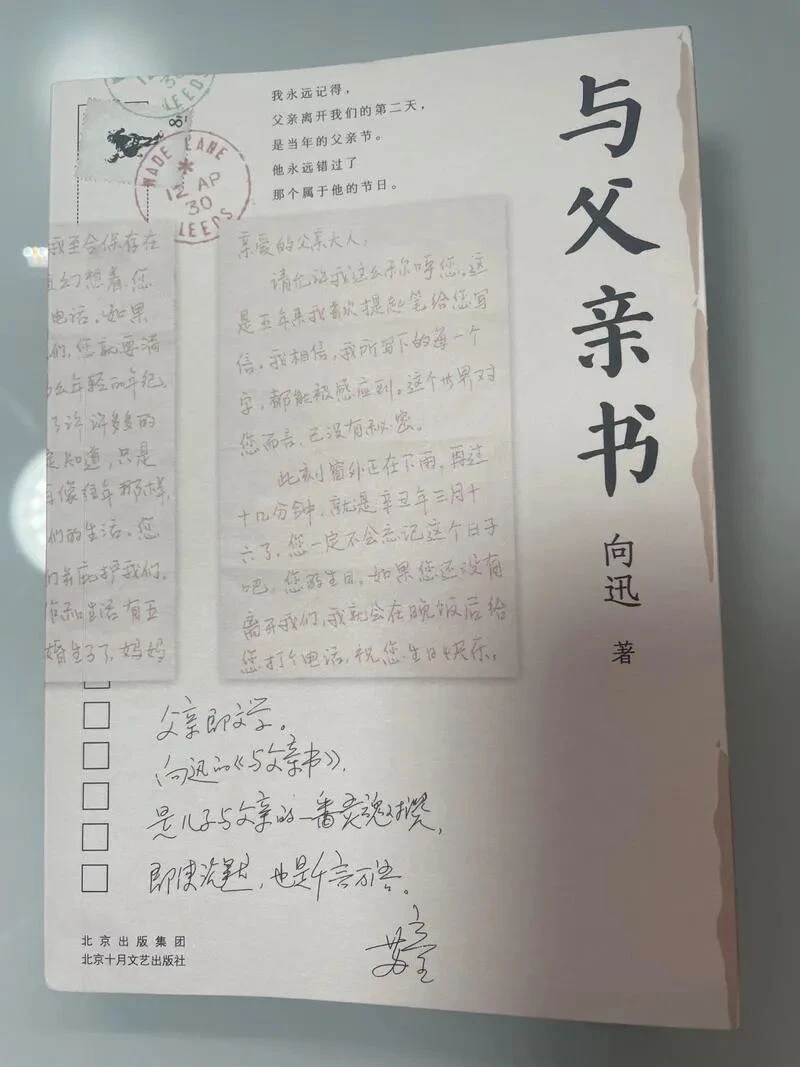 与父亲书
向迅
著
我永远记得，
父亲离开我们的第二天，
是当年的父亲节。
他永远错过了
那个属于他的节日。
30
LEEDS
8
WADE LANE
12 AP
30
LEEDS
我至会保存在
直幻想着，您
电话。如果
们，您就要满
么年轻的年纪
了许许多多的
定知道，只是
再像往年那样，
们的生活。您
们并庇护我们。
作和生活有五
婚生子了，妈妈
亲爱的父亲大人：
请允许我这么称呼您。这
是五年来我首次提起笔给您写
信。我相信，我所写下的每一个
字，都能被感应到。这个世界对
您而言，已没有秘密。
此刻窗外正在下雨，再过
十几分钟，就是辛丑年三月十
六了。您一定不会忘记这个日子
吧，您的生日。如果您还没有
离开我们，我就会在晚饭后给
您打个电话，祝您生日快乐。
父亲即文学。
向迅的《与父亲书》，
是儿子与父亲的一番灵魂对撞，
即使沉默，也是千言万语。
苏童
北京出版集团
北京十月文艺出版社